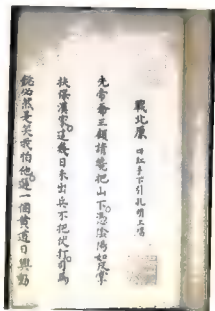 戰北原 四紅手下引孔明上唱
先帝爺三顧請龍把山下憑陰陽如反掌
扶保漢家這幾日未出兵不把仗打司馬
懿必然是笑我怕他選一個黃道日與勤